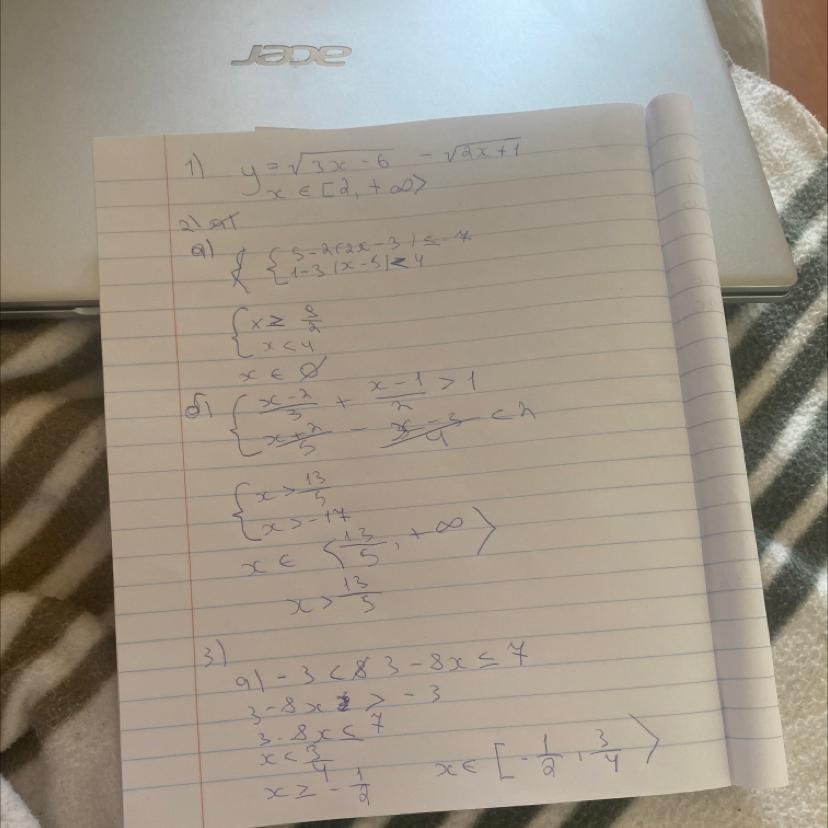 acer
1) y = √(3x - 6) - √(2x + 1)
x ∈ [2, + ∞>
2)
a) { { 5 - 2(2x - 3) ≤ -7
1 - 3(x - 5) < 4
{ x ≥ 9/2
x < 4
x ∈ ∅
б) { (x - 2)/3 + (x - 1)/2 > 1
(x + 2)/5 - (x - 3)/4 < 2
{ x > 13/5
x > -17
x ∈ <13/5, + ∞>
x > 13/5
3)
a) -3 < 3 - 8x ≤ 7
3 - 8x > -3
3 - 8x ≤ 7
x < 3/4
x ≥ -1/2 x ∈ [-1/2, 3/4>